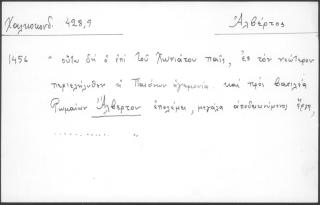 Χαλκοκονδ. 428,9
Ἀλβέρτος
1456 " οὕτω δὴ ὁ ἐπὶ τοῦ Χωνιάτου παῖς, ἐς τὸν νεώτερον
περιελήλυθεν ἡ Παιόνων ἡγεμονία. καὶ πρὸς βασιλέα
Ῥωμαίων Ἀλβερτον ἐπολέμει, μεγάλα ἀποδεικνύμενος ἔργα,
............ "